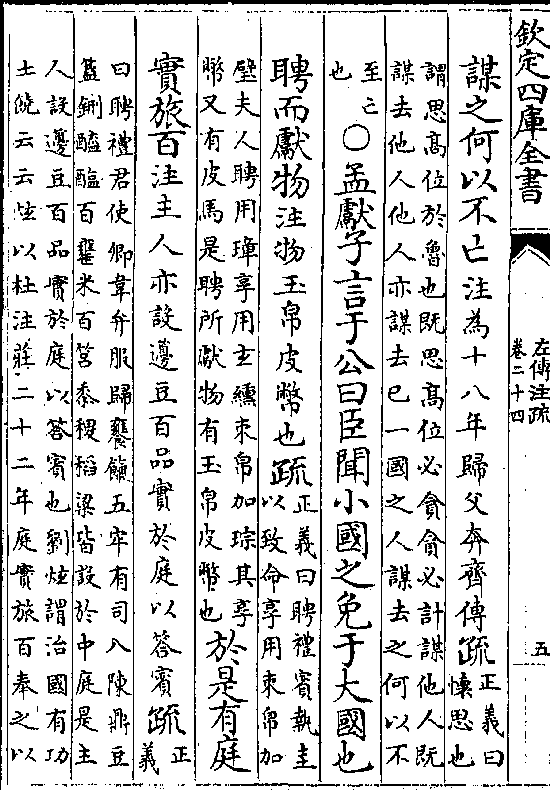 欽定四庫全書
左傳注疏
卷二十四
五
謀之何以不亡注為十八年歸父奔齊傳疏
正義曰
懷思也
謂思高位於魯也既思高位必貪貪必計謀他人既
謀去他人他人亦謀去已一國之人謀去之何以不
至亡
也
○孟獻子言于公曰臣聞小國之免于大國也
聘而獻物注物玉帛皮幣也疏
正義曰聘禮賓執圭
以致命享用束帛加
璧夫人聘用璋享用玄纁束帛加琮其享
幣又有皮馬是聘所獻物有玉帛皮幣也
於是有庭
實旅百注主人亦設邊豆百品實於庭以答賓疏
正
義
曰聘禮君使卿韋弁服歸饔餼五牢有司入陳鼎豆
簋鉶醯醢百罋米百筥黍稷稻粱皆設於中庭是主
人設邊豆百品實於庭以答賓也劉炫謂治國有功
土饒云云炫以杜注莊二十二年庭實旅百奉之以